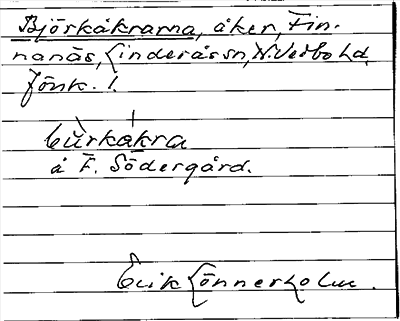 Björkåkrarna, åker, Fin-
nanäs, Linderåssn, N. Vedbo hd,
Jönk. l.
bùrkàkra
å F. Södergård.
Erik Lönnerholm.